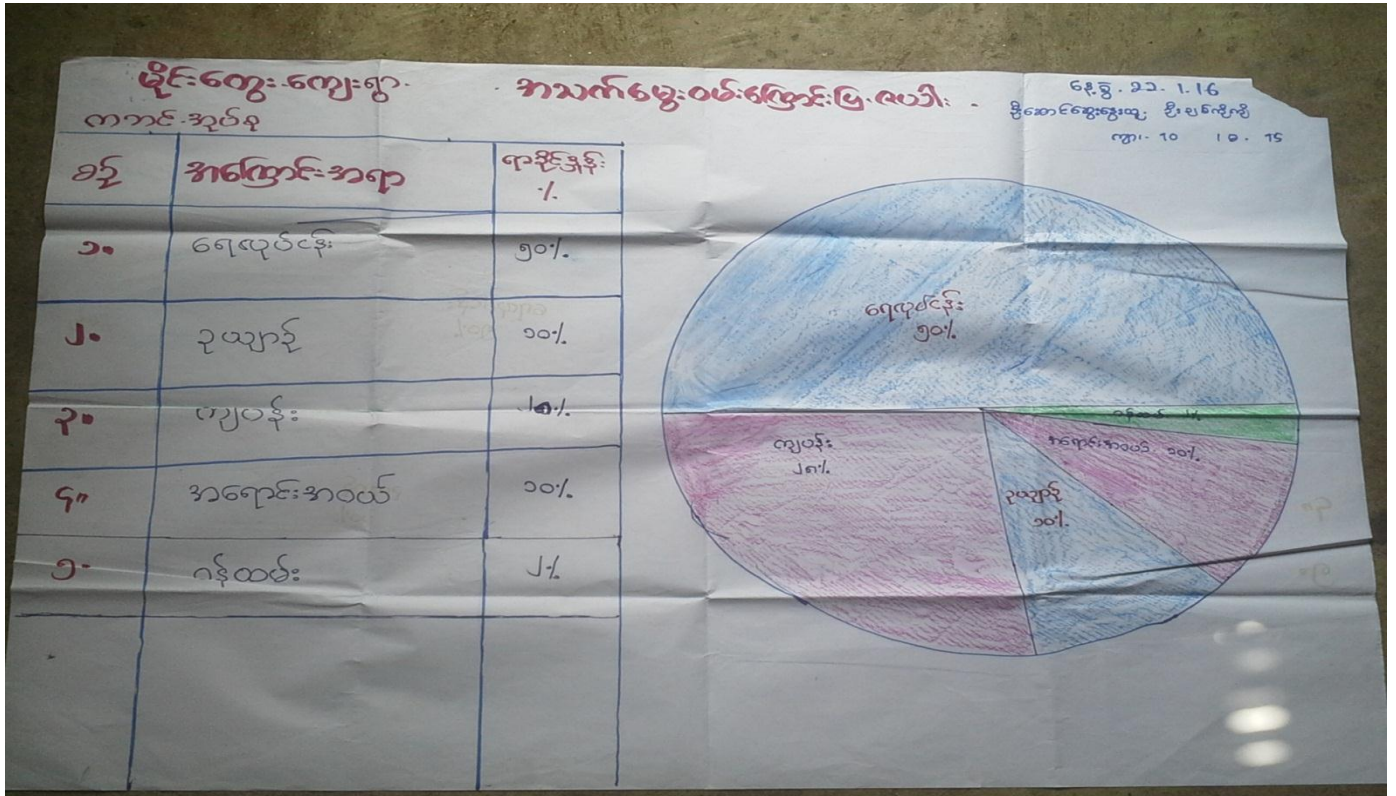 မိုင်းတွေး ကျေးရွာ.
အသက်မွေးဝမ်းကြောင်းပြ ဇယား
နေ့စွဲ. ၁၁. 1.16
ဦးဆောင်ဆွေးနွေးသူ
ကျား- 10 မ - 15
ကဘင်းအုပ်စု
စဉ် အကြောင်းအရာ ရာခိုင်နှုန်း %
၁။ ရေလုပ်ငန်း ၅၀%
၂။ ဥယျာဉ် ၁၀%
၃။ ကျပန်း ၂၈%
၄။ အရောင်းအဝယ် ၁၀%
၅။ ဝန်ထမ်း ၂%
ရေလုပ်ငန်း
၅၀%
ဝန်ထမ်း ၂%
အရောင်းအဝယ် ၁၀%
ကျပန်း
၂၈%
ဥယျာဉ်
၁၀%